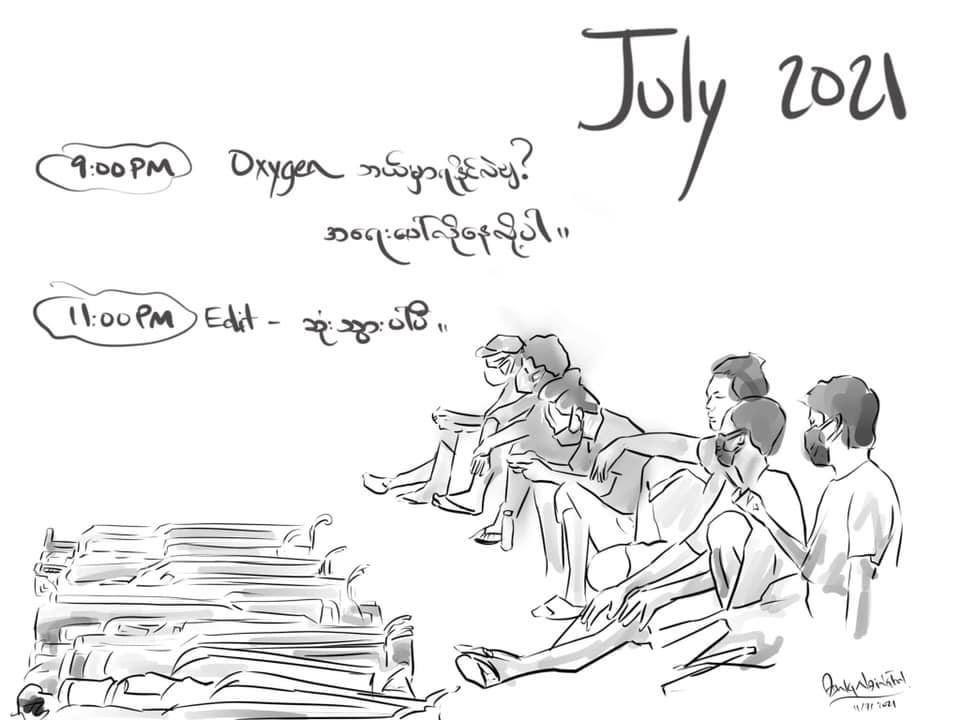 July 2021
9:00PM Oxygen ဘယ်မှာရနိုင်လဲဗျ?
အရေးပေါ်လိုနေလို့ပါ။
11:00PM Edit - ဆုံးသွားပါပြီ။
11/7/2021